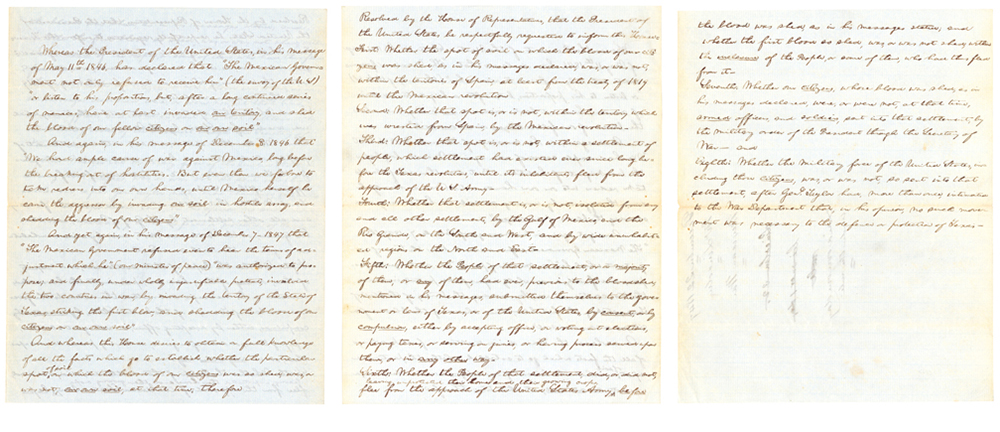 Whereas the President of the United States, in his message
of May 11th 1846, has declared that "The Mexican Govern-
ment not only refused to receive him" (the envoy of the U.S.)
"or listen to his propositions, but, after a long continued series
of menaces, have at last invaded our teritory, and shed
the blood of our fellow citizens on our own soil"
And again, in his message of December 8, 1846 that
"We had ample cause of war against Mexico, long before
the breaking out of hostilities. But even then we forbore to
take redress into our own hands, until Mexico herself be-
came the aggressor by invading our soil in hostile array, and
shedding the blood of our citizens"
And yet again, in his message of December 7- 1847 that
"The Mexican Government refused even to hear the terms of ad-
justment which he" (our minister of peace) "was authorized to pro-
pose; and finally, under wholly unjustifiable pretexts, involved
the two countries in war, by invading the teritory of the State of
Texas, striking the first blow, and shedding the blood of our
citizens on our own soil"
And whereas this House desires to obtain a full knowledge
of all the facts which go to establish whether the particular
spot of soil on which the blood of our citizens was so shed, was, or
was not, our own soil, at that time; therefore
Resolved by the House of Representatives, that the President of
the United States be respectfully requested to inform this House-
First: Whether the spot of soil on which the blood of our citi-
zens was shed, as in his messages declared, was, or was not,
within the teritories of Spain, at least from the treaty of 1819
until the Mexican revolution
Second: Whether that spot is, or is not, within the teritory which
was wrested from Spain, by the Mexican revolution-
Third: Whether that spot is, or is not, within a settlement of
people, which settlement had existed ever since long be-
fore the Texas revolution, until its inhabitants fled from the
approach of the U.S. Army-
Fourth: Whether that settlement is, or is not, isolated from any
and all other settlements, by the Gulf of Mexico, and the
Rio Grande, on the South and West, and by wide uninhabit-
ed regions on the North and East-
Fifth: Whether the People of that settlement, or a majority
of them, or any of them, had ever, previous to the bloodshed,
mentioned in his messages, submitted themselves to the govern-
ment or laws of Texas, or of the United States, by consent, or by
compulsion, either by accepting office, or voting at elections,
or paying taxes, or serving on juries, or having process served upon
them, or in any other way-
Sixth: Whether the People of that settlement, did, or did not,
leaving unprotected their homes and their growing crops
flee from the approach of the United States Army, before
the blood was shed, as in his messages stated; and
whether the first blood so shed, was, or was not shed, within
the enclosure of the People, or some of them, who had thus fled
from it-
Seventh: Whether our citizens, whose blood was shed, as in
his messages declared, were, or were not, at that time,
armed officers, and soldiers, sent into that settlement, by
the military order of the President through the Secretary of
War- and
Eighth: Whether the military force of the United States, in-
cluding those citizens, was, or was not, so sent into that
settlement, after Genl. Taylor had, more than once, intimated
to the War Department that, in his opinion, no such move-
ment was necessary to the defence or protection of Texas-